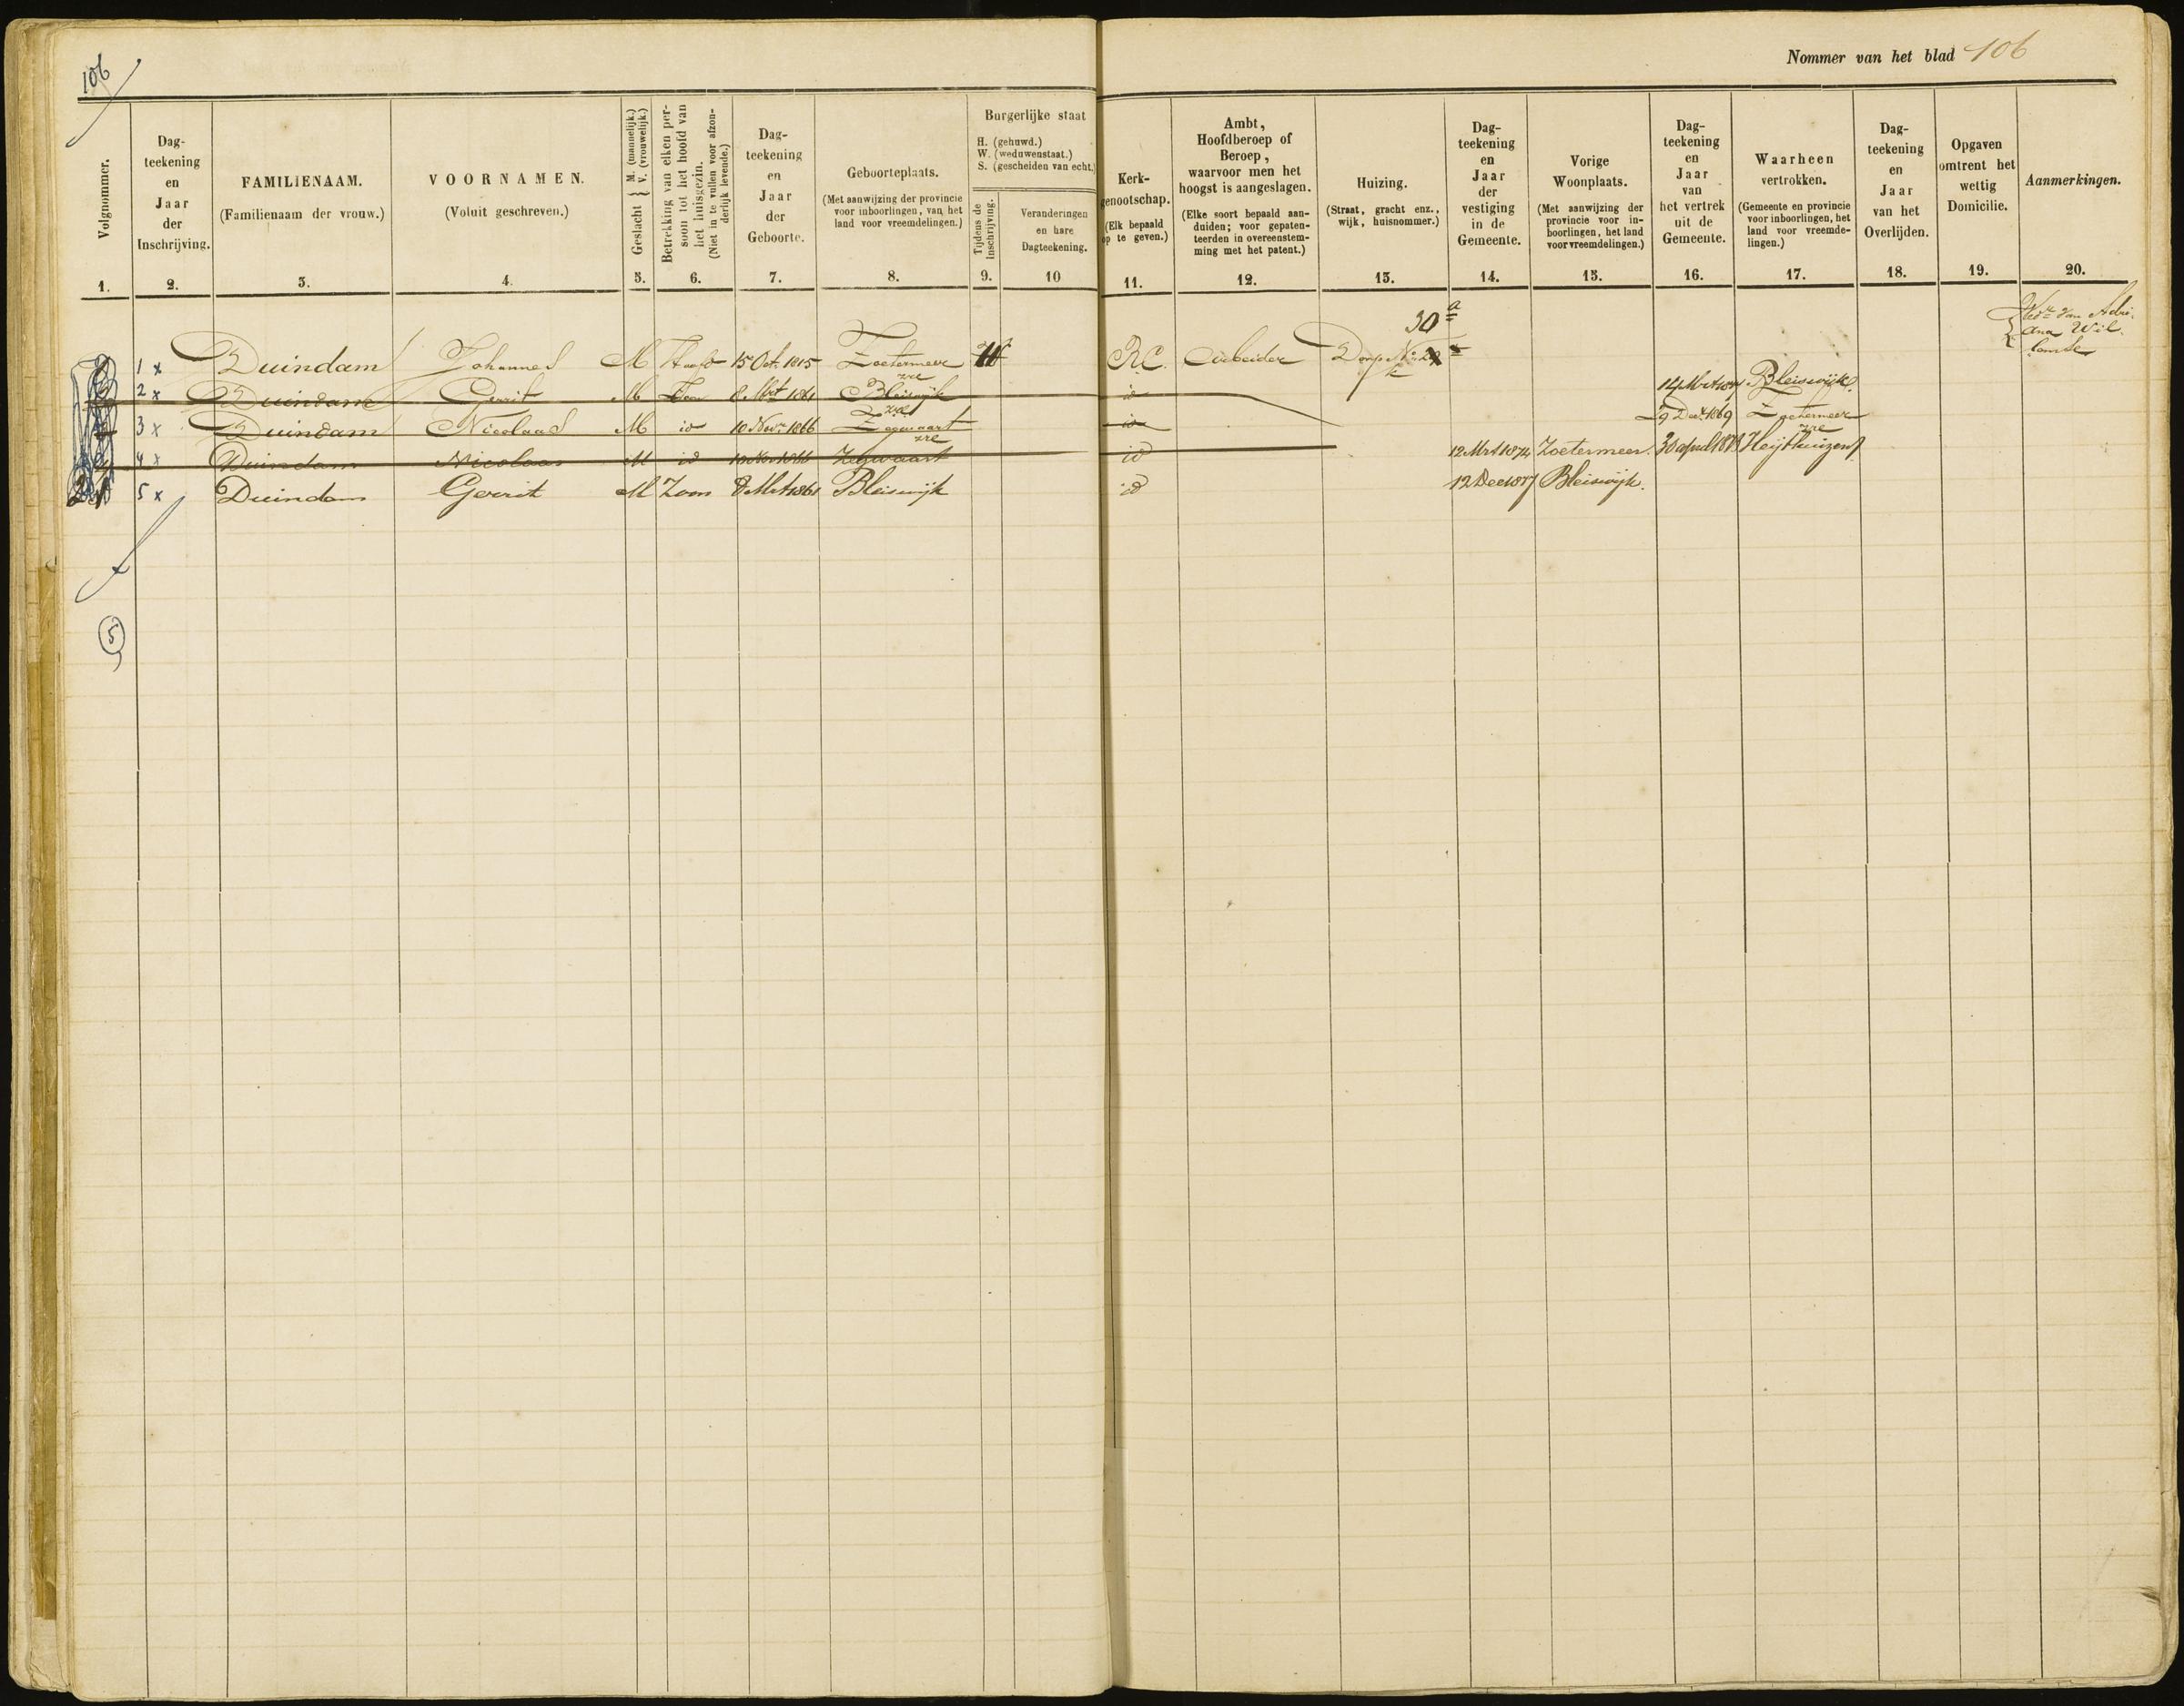 106
Nommer van het blad 106
Volgnommer.
1.
Dag-
teekening
en
Jaar
der
Inschrijving.
2.
FAMILIENAAM.
(Familienaam der vrouw.)
3.
VOORNAMEN.
(Voluit geschreven.)
4.
Geslacht { M. (mannelijk.) V. (vrouwelijk.)
5.
Betrekking van elken per-
soon tot het hoofd van
het huisgezin.
(Niet in te vullen voor afzon-
derlijk levende.)
6.
Dag-
teekening
en
Jaar
der
Geboorte.
7.
Geboorteplaats.
(Met aanwijzing der provincie
voor inboorlingen, van het
land voor vreemdelingen.)
8.
Burgerlijke staat
H. (gehuwd.)
W. (weduwenstaat.)
S. (gescheiden van echt.)
Tijdens de
inschrijving.
9.
Veranderingen
en hare
Dagteekening.
10
Kerk-
genootschap.
(Elk bepaald
op te geven.)
11.
Ambt,
Hoofdberoep of
Beroep,
waarvoor men het
hoogst is aangeslagen.
(Elke soort bepaald aan-
duiden; voor gepaten-
teerden in overeenstem-
ming met het patent.)
12.
Huizing.
(Straat, gracht enz.,
wijk, huisnommer.)
13.
Dag-
teekening
en
Jaar
der
vestiging
in de
Gemeente.
14.
Vorige
Woonplaats.
(Met aanwijzing der
provincie voor in-
boorlingen, het land
voor vreemdelingen.)
15.
Dag-
teekening
en
Jaar
van
het vertrek
uit de
Gemeente.
16.
Waarheen
vertrokken.
(Gemeente en provincie
voor inboorlingen, het
land voor vreemde-
lingen.)
17.
Dag-
teekening
en
Jaar
van het
Overlijden.
18.
Opgaven
omtrent het
wettig
Domicilie.
19.
Aanmerkingen.
20.
30a
Wedr van Adri-
ana Wil
1 x Duindam Johannes M Hoofd 15 Oct. 1815 Zoetermeer R.C. Arbeider Dorp No
2 x Duindam Gerrit M Zoon 8 Mrt 1861 Bleiswijk id 14 Mrt 1877 Bleiswijk
3 x Duindam Nicolaas M id 10 Novr 1866 Zegwaart id 29 Decr 1869 Zoetermeer
4 x Duindam Nicolaas M id 10 Nov 1866 Zegwaart id 12 Mrt 1874 Zoetermeer. 30 april 1878 Heijthuizen
5 x Duindam Gerrit M Zoon 8 Mrt 1861 Bleiswijk id 12 Dec 1877 Bleiswijk.
5